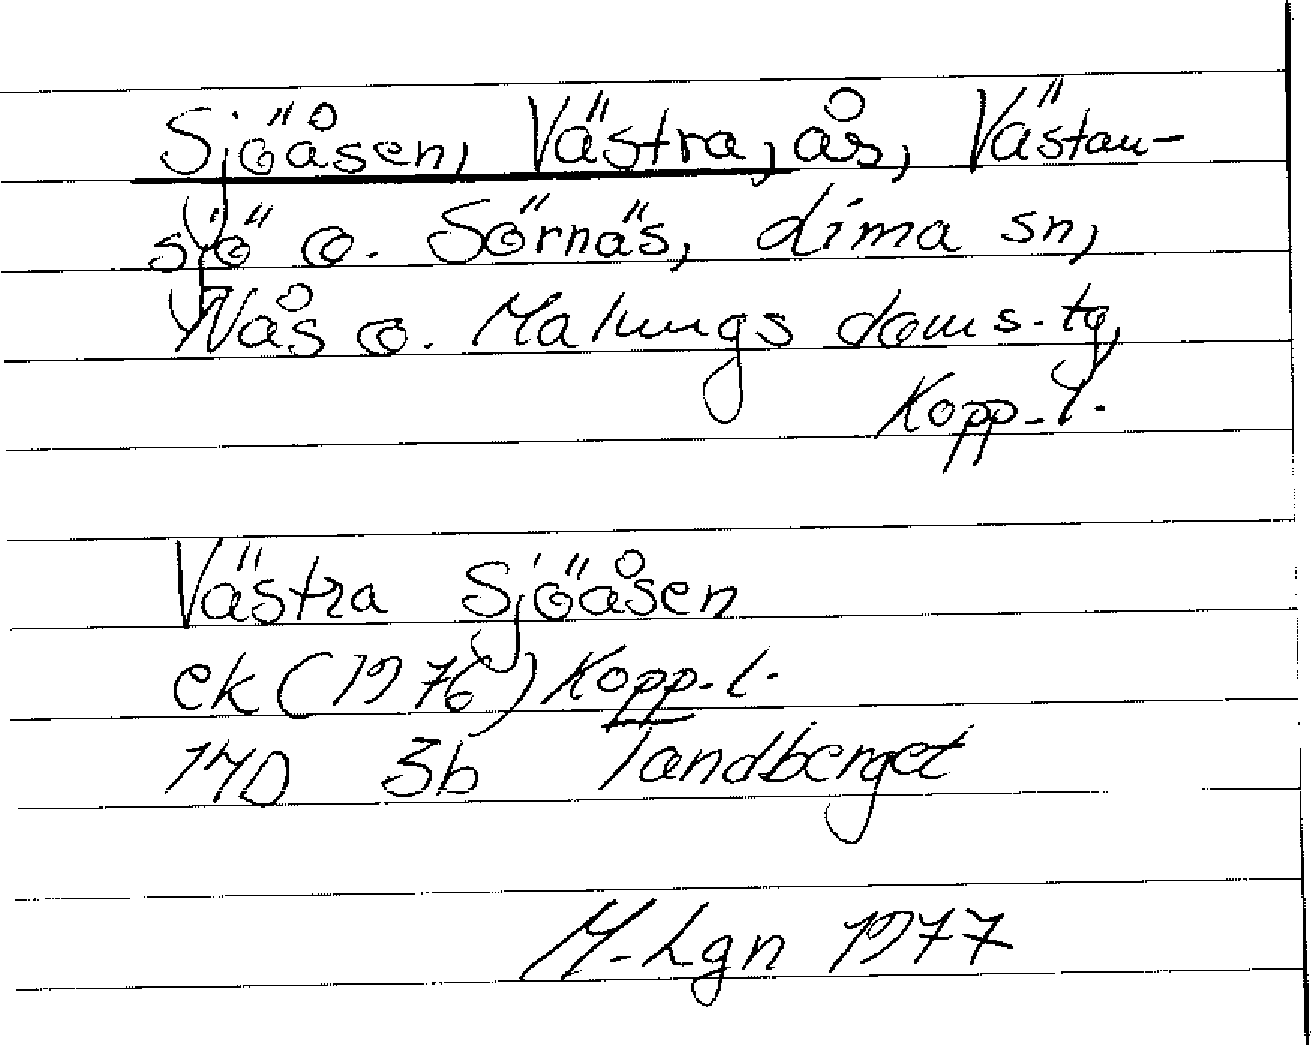 Sjöåsen, Västra, ås, Västan-
sjö o. Sörnäs, Lima sn,
Nås o. Malungs doms. tg,
Kopp. l.
Västra Sjöåsen
ek (1976) Kopp. l.
14D 3b Tandberget
M-Lgn 1977